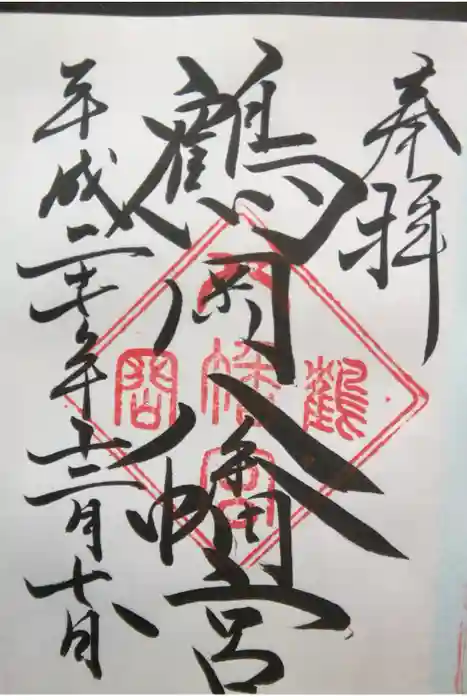 奉拝
鶴岡八幡宮
鶴岡八幡宮
平成二十七年十二月十八日